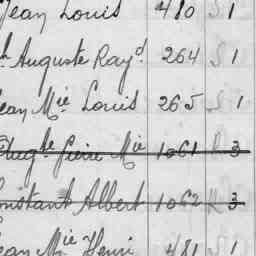 Jean Louis 480 S 1
Auguste Ray.d 264 S 1
Jean Mie Louis 265 S 1
Pierre Mie 1061 R 3
Constant Albert 1062 R 3
Jean Mie Henri 481 S 1